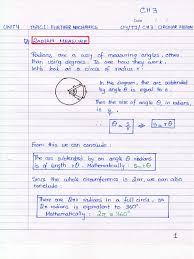 CH 3
Date
UNIT 4 TOPIC 1: FURTHER MECHANICS CH 3: CIRCULAR MOTION
RADIAN MEASURE
Radians are a way of measuring angles, other
than using degrees. To see how they work,
let's look at a circle of radius r.
In the diagram, the arc subtended
by angle θ is equal to s.
Then the size of angle θ, in radians,
is
θ = s/r ⇒ s = rθ
From this we can conclude:
The arc subtended by an angle θ radians
is of length rθ. Mathematically: s = rθ
Since the whole circumference is 2πr, we can also
conclude:
There are 2π radians in a full circle, so
2π radians is equivalent to 360°
Mathematically: 2π ≡ 360°
1